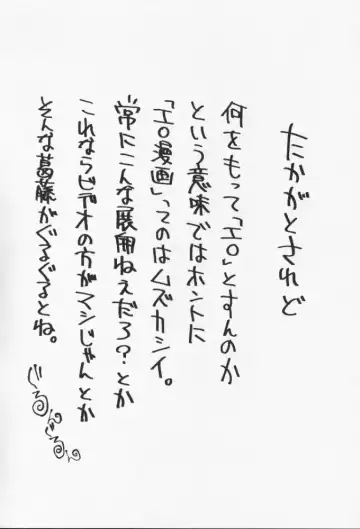 たかがとされど
何をもって「エロ」とすんのか
という意味ではホントに
「エロ漫画」ってのはムズカシイ。
常にこんな展開ねぇだろ？とか
これならビデオの方がマシじゃんとか
そんな葛藤がぐるぐるとね。
ぐるんぐるん